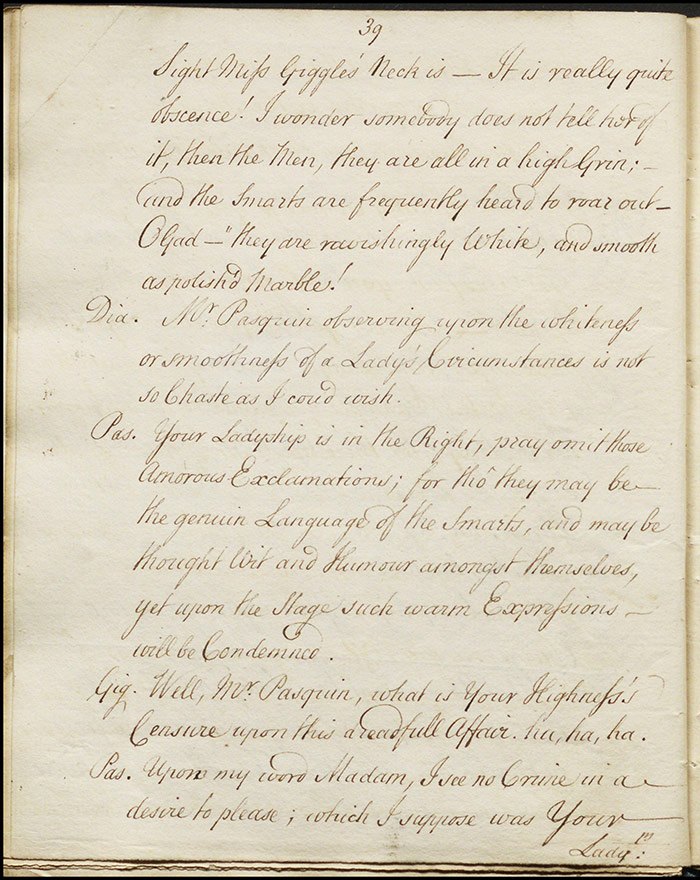 39
Sight Miss Giggle's Neck is — It is really quite
obscence! I wonder somebody does not tell her of
it, then the Men, they are all in a high Grin; –
and the Smarts are frequently heard to roar out –
O Gad – "they are ravishingly White, and smooth
as polish'd Marble!
Dia. Mr. Pasquin observing upon the whiteness
or smoothness of a Lady's Circumstances is not
so Chaste as I cou'd wish.
Pas. Your Ladyship is in the Right, pray omit those
Amorous Exclamations; for tho' they may be —
the genuin Language of the Smarts, and may be
thought Wit and Humour amongst themselves,
yet upon the Stage such warm Expressions —
will be Condemned.
Gig. Well, Mr. Pasquin, what is Your Highness's
Censure upon this dreadfull Affair. ha, ha, ha.
Pas. Upon my word Madam, I see no Crime in a —
desire to please; which I suppose was Your —
Ladyp: